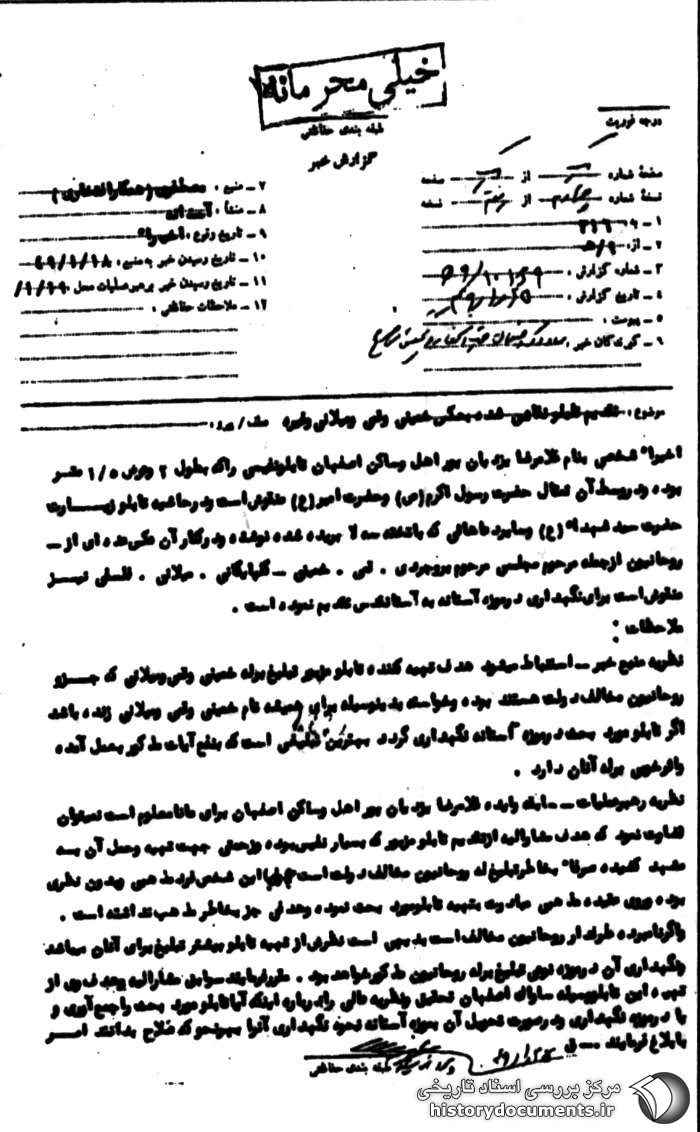 خیلی محرمانه
طبقه بندی حفاظتی
گزارش خبر
درجه فوریت
صفحه شماره از صفحه
نسخه شماره چهارم از نسخه
۱ - به
۲ - از:
۳ - شماره گزارش:
۴ - تاریخ گزارش:
۵ - پیوست:
۶ - گیرندگان خبر:
۷ - منبع:
۸ - منشأ:
۹ - تاریخ وقوع: اخیراً
۱۰ - تاریخ رسیدن خبر به منبع: ۴۹/۱/۱۸
۱۱ - تاریخ رسیدن خبر برهبر عملیات محل
۱۲ - ملاحظات حفاظتی:
موضوع: تقدیم تابلو نقاشی شده بعکس خمینی وقمی ومیلانی وغیره
اخیراً شخصی بنام غلامرضا اهل وساکن اصفهان تابلو نفیسی راکه بطول ۲ وعرض ۱/۵ متر
بوده ودروسط آن تمثال حضرت رسول اکرم (ص) وحضرت امیر(ع) منقوش است ودرحاشیه تابلو زیارت
حضرت سید شهداء (ع) که باتخته سه لا بریده شده نوشته ودرکنار آن عکس عده ای از -
روحانیون ازجمله مرحوم مجلسی مرحوم بروجردی . قمی . خمینی - گلپایگانی . میلانی . فلسفی نیز
منقوش است برای نگهداری درموزه آستانه به آستانقدس تقدیم نموده است .
ملاحظات :
نظریه منبع خبر - استنباط میشود هدف تهیه کننده تابلو مزبور تبلیغ برله خمینی وقمی ومیلانی که جزو
روحانیون مخالف دولت هستند بوده وخواسته بدینوسیله برای همیشه نام خمینی وقمی ومیلانی زنده باشد
اگر تابلو مورد بحث درموزه آستانه نگهداری گردد بهترین تبلیغی است که بنفع آیات مذکور بعمل آمده
واثرخوبی برله آنان دارد .
نظریه رهبرعملیات - غلامرضا اهل وساکن اصفهان برای ما نامعلوم است نمیتوان
قضاوت نمود که هدف مشارالیه ازتقدیم تابلو مزبور که بسیار نفیس بوده وزحمتی جهت تهیه وحمل آن به
مشهد کشیده صرفاً بخاطرتبلیغ له روحانیون مخالف دولت است این شخص فرد مذهبی وبدون نظری
بوده وروی عقیده مذهبی مبادرت بتهیه تابلومورد بحث نموده وهدفی جز بخاطر مذهب نداشته است .
واگرنامبرده طرفدار روحانیون مخالف است بدیهی است نظری از تهیه تابلو بیشتر تبلیغ برای آنان میباشد
ونگهداری آن درموزه نوعی تبلیغ برله روحانیون مذکورخواهد بود . مقررفرمایند سوابق مشارالیه وهدف وی از
تهیه این تابلو بوسیله ساواک اصفهان تحقیق ونظریه عالی رادرباره اینکه آیا تابلو مورد بحث راجمع آوری و
یا درموزه نگهداری ودرصورت تحویل آن بموزه آستانه نحوه نگهداری آنرا بهرنحوکه صلاح بدانند امر
بابلاغ فرمایند
طبقه بندی حفاظتی
مرکز بررسی اسناد تاریخی
historydocuments.ir